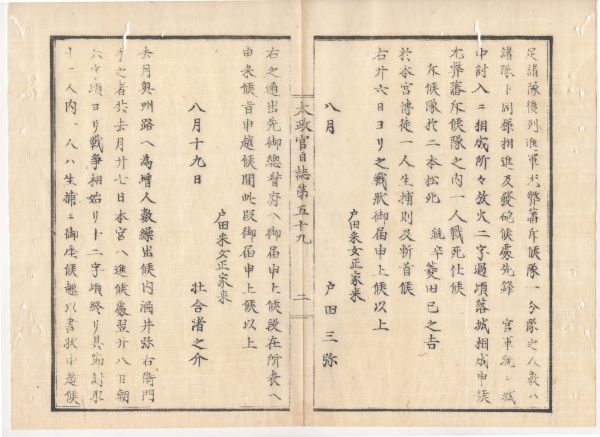 足諸隊後列進軍尤弊藩斥候隊一分隊之人数ハ
諸隊ト同様相進及發砲候處先鋒 官軍既ニ城
中討入ニ相成所々放火二字過頃落城相成申候
尤弊藩斥候隊之内一人戦死仕候
斥候隊於二本松死 銃卒 菱田巳之吉
於本宮博徒一人生捕則及斬首候
右廿六日ヨリ之戦状御届申上候以上
戸田采女正家来
八月 戸田三弥
太政官日誌第五十九 二
右之通出先御總督府ヘ御届申上候段在所表ヘ
申来候旨申越候間此段御届申上候以上
戸田采女正家来
八月十九日 壮合渚之介
去月奥州路ヘ為増人数繰出候内酒井弥右衛門
手之者共去月廿七日本宮ヘ進候處翌廿八日朝
六字頃ヨリ戦争相始リ十二字頃終リ其節討取
十一人内一人ハ生捕ニ御座候趣以書状申越候